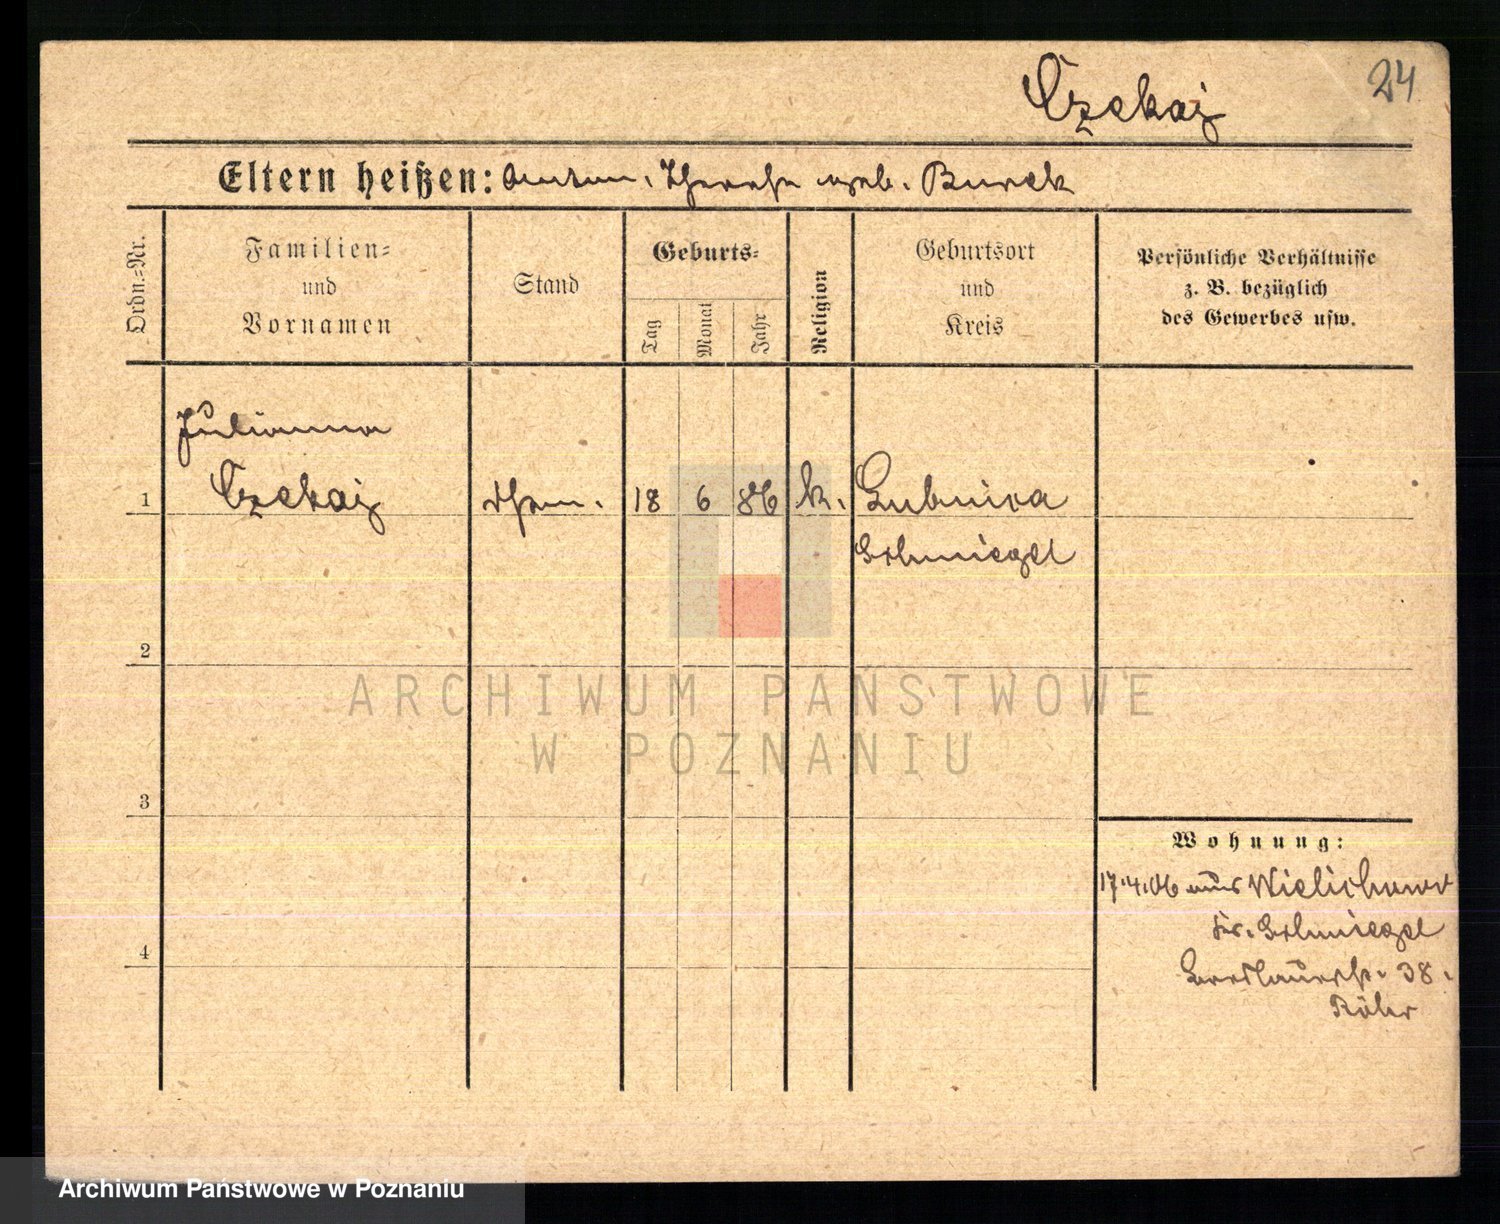 Czekaj
24
Eltern heißen: Anton, Therese geb. Burek
Ordn.-Nr.
Familien-
und
Vornamen
Stand
Geburts-
Tag
Monat
Jahr
Religion
Geburtsort
und
Kreis
Persönliche Verhältnisse
z. B. bezüglich
des Gewerbes usw.
Julianna
1 Czekaj 18 6 86 k. Lubnica
Schmiegel
2
ARCHIWUM PAŃSTWOWE
W POZNANIU
3
Wohnung:
17.4.06 aus Wielichowo
Kr. Schmiegel
4
38.
Archiwum Państwowe w Poznaniu